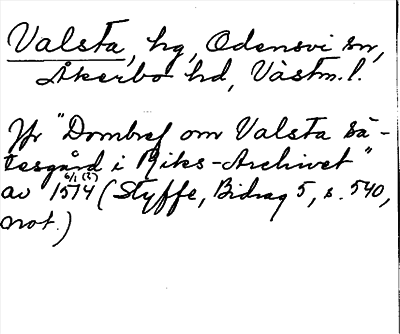 Valsta, hg, Odensvi sn,
Åkerbo hd, Västm. l.
Jfr "Dombref om Valsta sä-
tesgård i Riks-Archivet"
6/1 (?)
av 1514 (Styffe, Bidrag 5, s. 540,
not.)